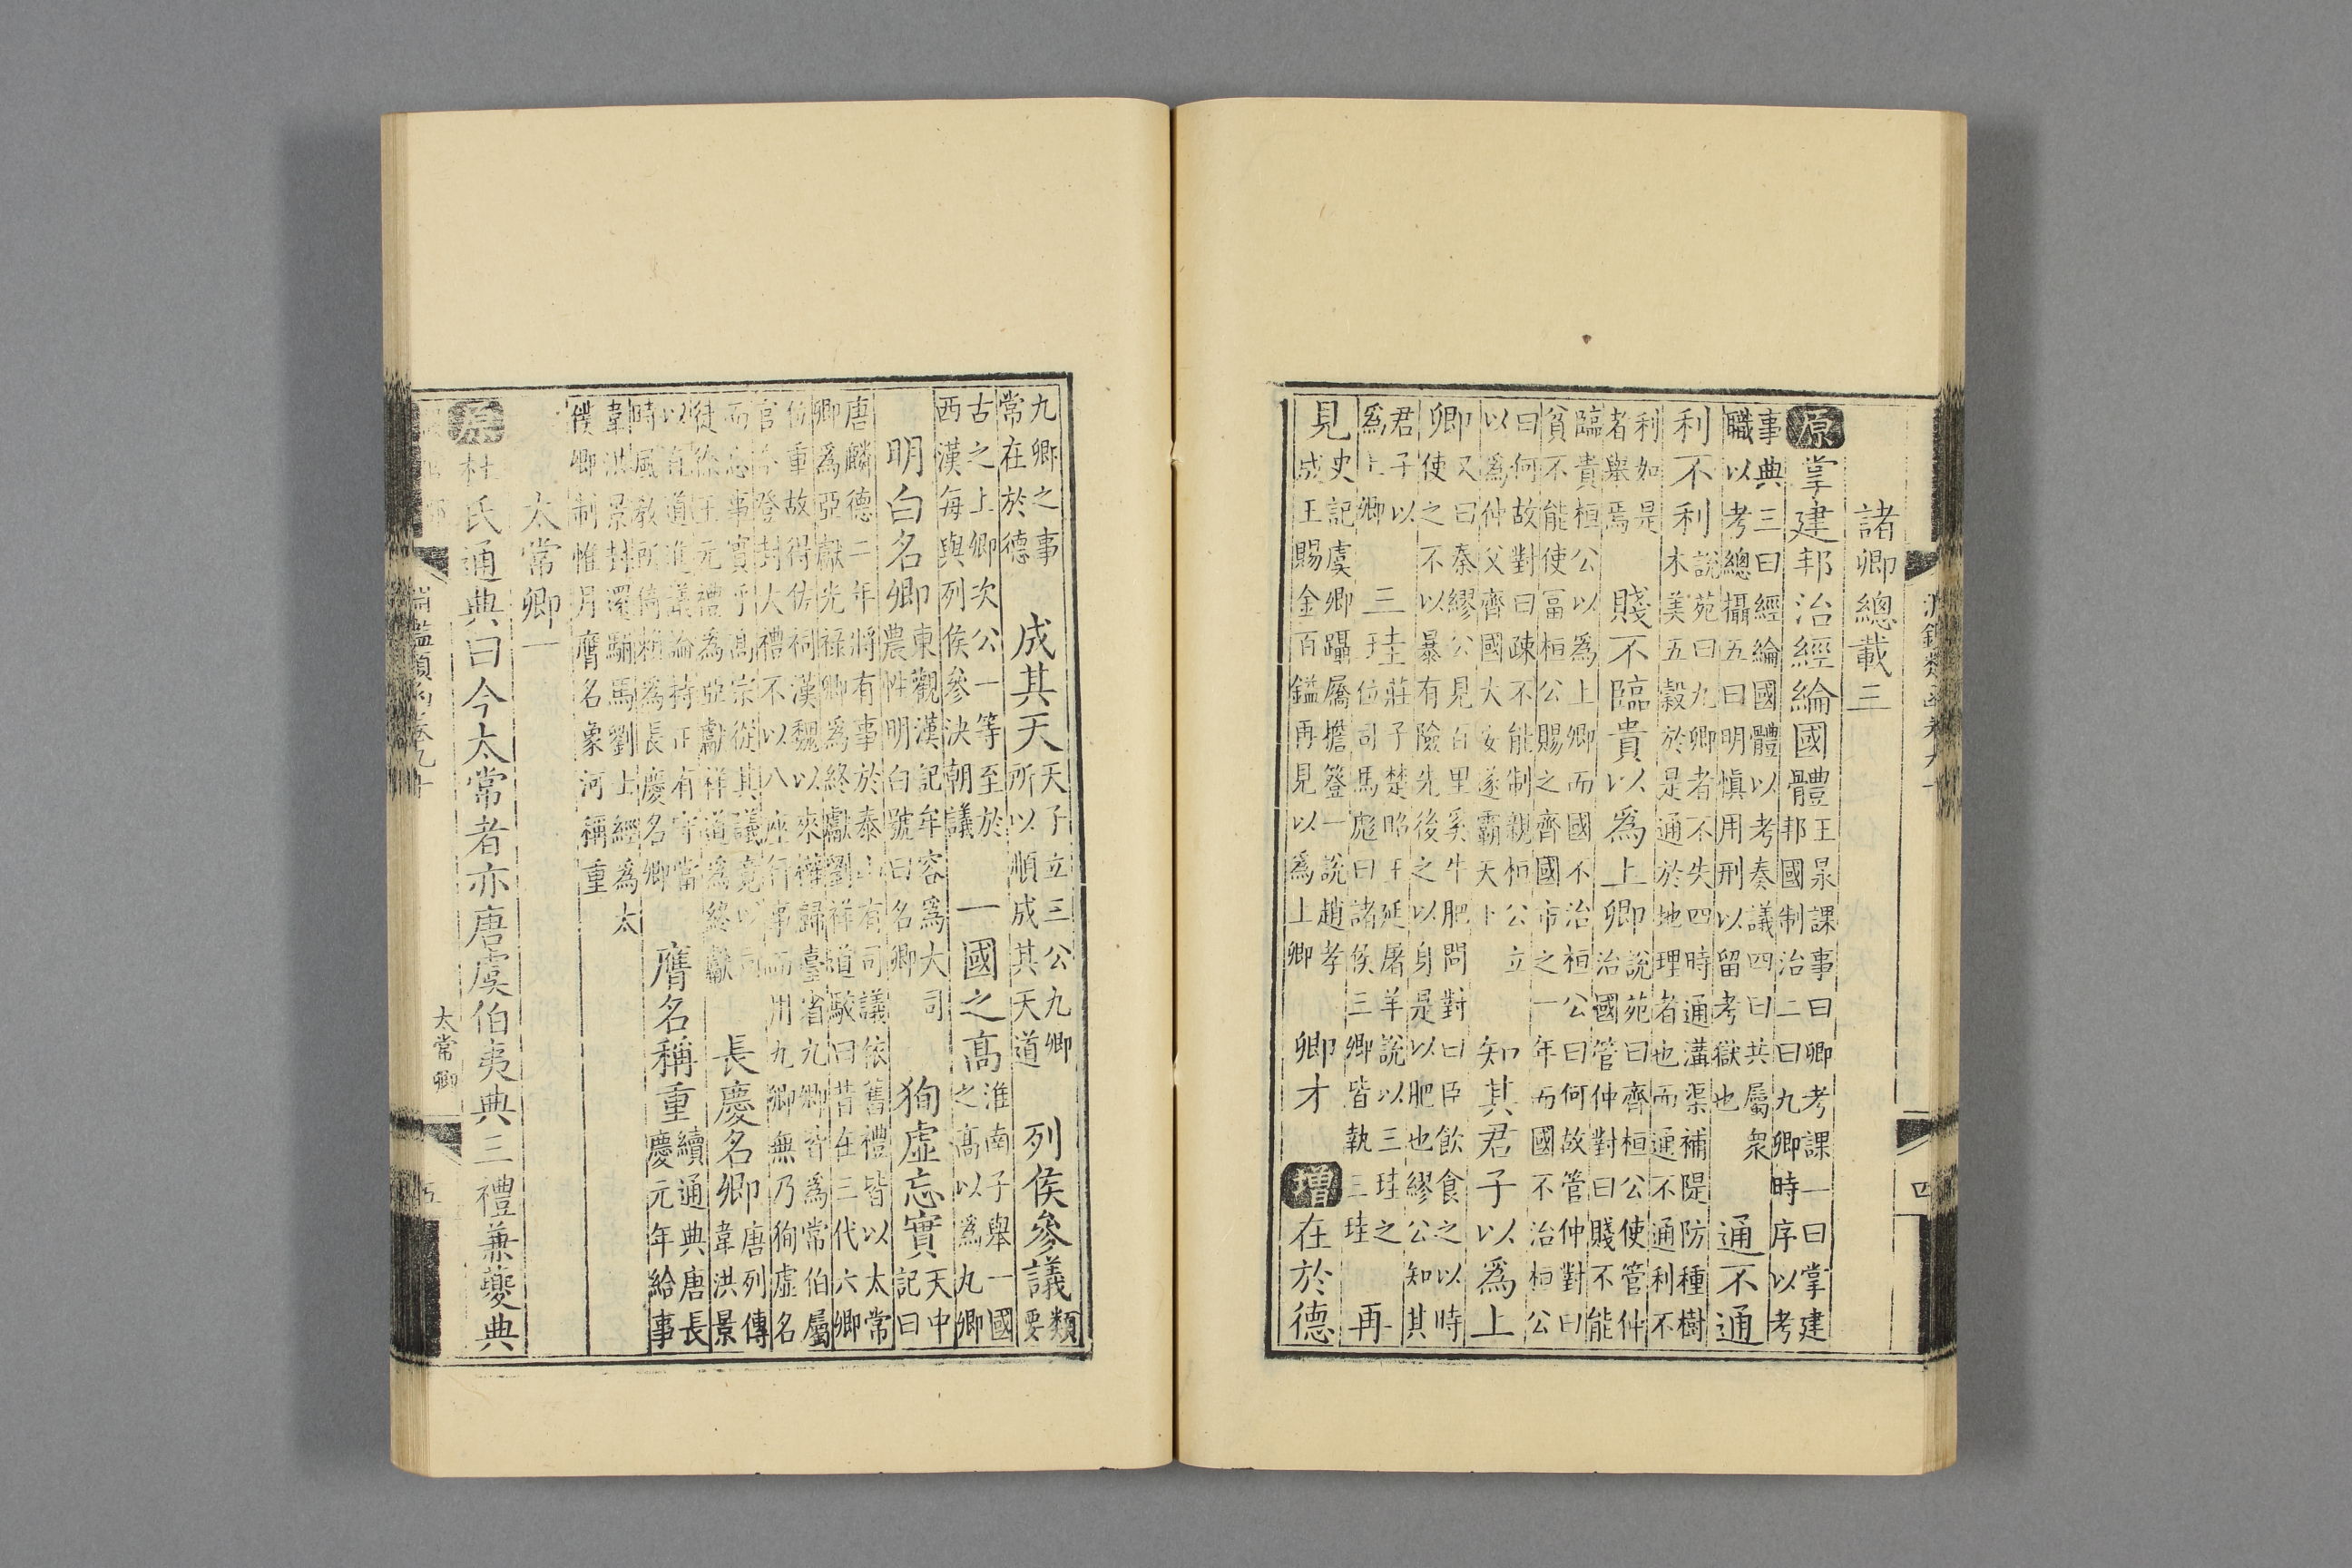 淵鑑類函卷九十
四
諸卿總載三
原掌建邦治經綸國體王㬎課事曰卿考課一曰掌建
邦國制治二曰九卿時序以考
事典三曰經綸國體以考奏議四曰共屬衆
職以考總攝五曰明慎用刑以留考獄也通不通
利不利說苑曰九卿者不失四時通溝渠補隄防種樹
木美五穀於是通於地理者也而通不通利不
利如是
者舉焉賤不臨貴以爲上卿說苑曰齊桓公使管仲
治國管仲對曰賤不能
臨貴桓公以爲上卿而國不治桓公曰何故管仲對曰
貧不能使冨桓公賜之齊國市之一年而國不治桓公
曰何故對曰疎不能制親桓公立
以爲仲父齊國大安遂霸天下知其君子以爲上
卿又曰秦繆公見百里奚牛肥問對曰臣飲食之以時
使之不以暴有險先後之以身是以肥也繆公知其
君子以
爲上卿三珪莊子楚昭王延屠羊說以三珪之
位司馬彪曰諸侯三卿皆執三珪再
見史記虞卿躡屩擔簦一說趙孝
成王賜金百鎰再見以爲上卿卿才增在於德
九卿之事
常在於德成其天天子立三公九卿
所以順成其天道列侯參議類
要
古之上卿次公一等至於
西漢每與列侯參決朝議一國之高淮南子舉一國
之高以爲九卿
明白名卿東觀漢記牟容爲大司
農性明白號曰名卿狥虛忘實天中
記曰
唐麟德二年將有事於泰山有司議依舊禮皆以太常
卿爲亞獻光祿卿爲終獻劉祥道駁曰昔在三代六卿
位重故得佐祠漢魏以來權歸臺省九卿皆爲常伯屬
官今登封大禮不以八座行事而用九卿無乃狥虛名
而忘事實乎高宗從其議竟以司
徒徐王元禮爲亞獻祥道爲終獻長慶名卿唐列傳
韋洪景
以直道進議論持正有守當
時風教所倚賴爲長慶名卿膺名稱重續通典唐長
慶元年給事
韋洪景封還駙馬劉士經爲太
僕卿制惟月膺名象河稱重
太常卿一
原杜氏通典曰今太常者亦唐虞伯夷典三禮兼夔典
淵鑑類函卷九十
太常卿
五